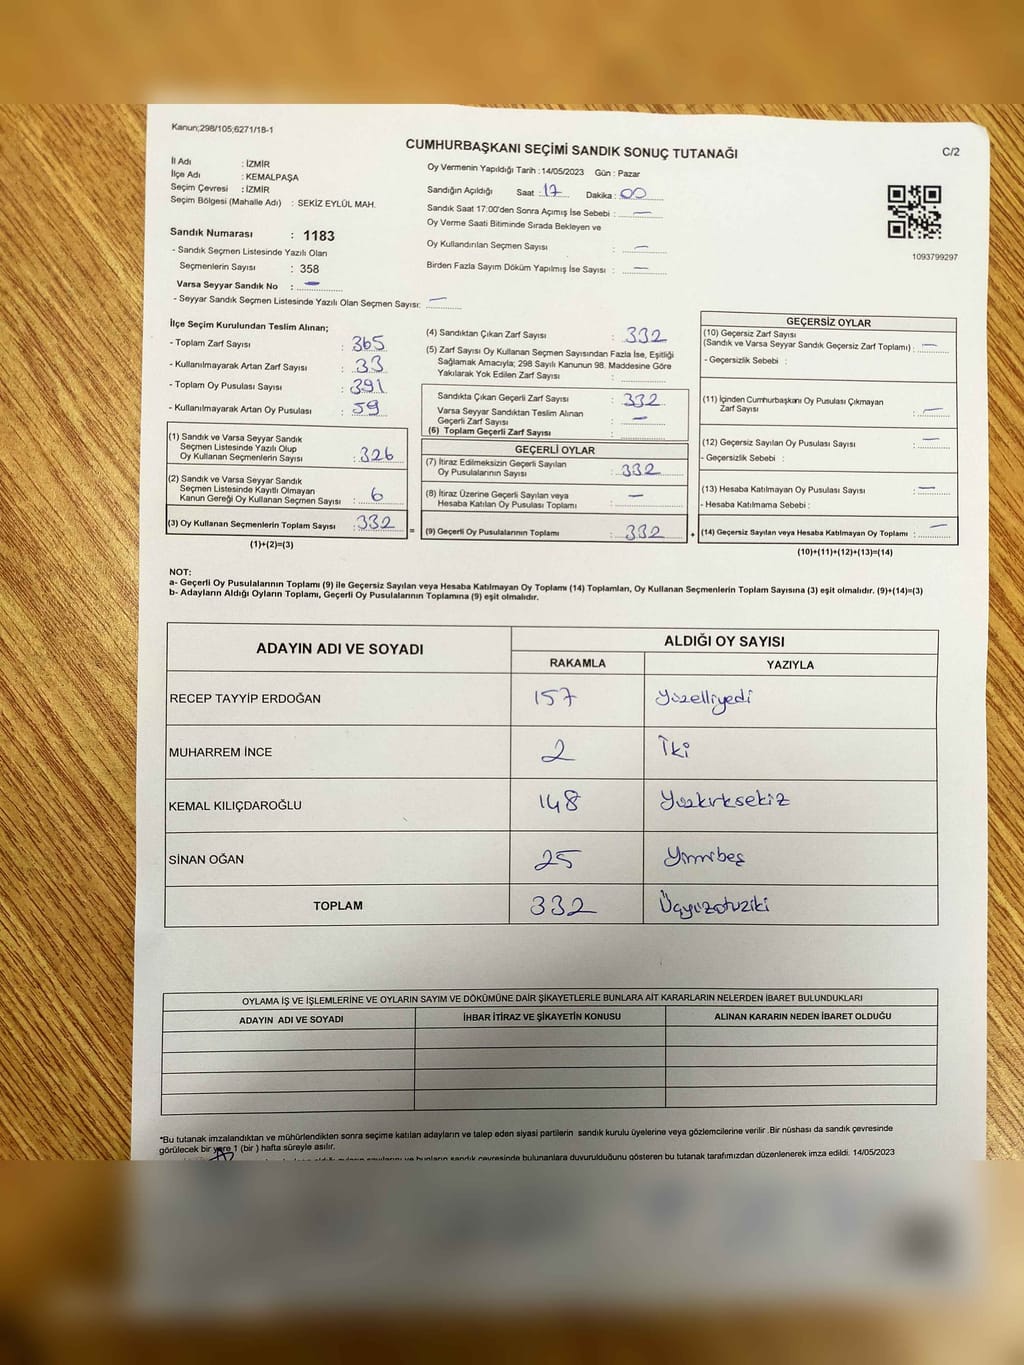 Kanun;298/105;6271/18-1
CUMHURBAŞKANI SEÇİMİ SANDIK SONUÇ TUTANAĞI
C/2
İl Adı : İZMİR
İlçe Adı : KEMALPAŞA
Seçim Çevresi : İZMİR
Seçim Bölgesi (Mahalle Adı) : SEKİZ EYLÜL MAH.
Sandık Numarası : 1183
- Sandık Seçmen Listesinde Yazılı Olan
Seçmenlerin Sayısı : 358
Varsa Seyyar Sandık No : —
- Seyyar Sandık Seçmen Listesinde Yazılı Olan Seçmen Sayısı: —
Oy Vermenin Yapıldığı Tarih :14/05/2023 Gün : Pazar
Sandığın Açıldığı Saat :17 Dakika :00
Sandık Saat 17:00'den Sonra Açımış İse Sebebi : —
Oy Verme Saati Bitiminde Sırada Bekleyen ve
Oy Kullandırılan Seçmen Sayısı : —
Birden Fazla Sayım Döküm Yapılmış İse Sayısı : —
1093799297
İlçe Seçim Kurulundan Teslim Alınan;
- Toplam Zarf Sayısı : 365
- Kullanılmayarak Artan Zarf Sayısı : 33
- Toplam Oy Pusulası Sayısı : 391
- Kullanılmayarak Artan Oy Pusulası : 59
(1) Sandık ve Varsa Seyyar Sandık
Seçmen Listesinde Yazılı Olup
Oy Kullanan Seçmenlerin Sayısı : 326
(2) Sandık ve Varsa Seyyar Sandık
Seçmen Listesinde Kayıtlı Olmayan
Kanun Gereği Oy Kullanan Seçmen Sayısı : 6
(3) Oy Kullanan Seçmenlerin Toplam Sayısı : 332 =
(1)+(2)=(3)
(4) Sandıktan Çıkan Zarf Sayısı : 332
(5) Zarf Sayısı Oy Kullanan Seçmen Sayısından Fazla İse, Eşitliği
Sağlamak Amacıyla; 298 Sayılı Kanunun 98. Maddesine Göre
Yakılarak Yok Edilen Zarf Sayısı :
Sandıkta Çıkan Geçerli Zarf Sayısı : 332
Varsa Seyyar Sandıktan Teslim Alınan
Geçerli Zarf Sayısı : —
(6) Toplam Geçerli Zarf Sayısı :
GEÇERLİ OYLAR
(7) İtiraz Edilmeksizin Geçerli Sayılan
Oy Pusulalarının Sayısı : 332
(8) İtiraz Üzerine Geçerli Sayılan veya
Hesaba Katılan Oy Pusulası Toplamı : —
(9) Geçerli Oy Pusulalarının Toplamı : 332 +
GEÇERSİZ OYLAR
(10) Geçersiz Zarf Sayısı
(Sandık ve Varsa Seyyar Sandık Geçersiz Zarf Toplamı) : —
- Geçersizlik Sebebi :
(11) İçinden Cumhurbaşkanı Oy Pusulası Çıkmayan
Zarf Sayısı : —
(12) Geçersiz Sayılan Oy Pusulası Sayısı : —
- Geçersizlik Sebebi :
(13) Hesaba Katılmayan Oy Pusulası Sayısı : —
- Hesaba Katılmama Sebebi :
(14) Geçersiz Sayılan veya Hesaba Katılmayan Oy Toplamı : —
(10)+(11)+(12)+(13)=(14)
NOT:
a- Geçerli Oy Pusulalarının Toplamı (9) ile Geçersiz Sayılan veya Hesaba Katılmayan Oy Toplamı (14) Toplamları, Oy Kullanan Seçmenlerin Toplam Sayısına (3) eşit olmalıdır. (9)+(14)=(3)
b- Adayların Aldığı Oyların Toplamı, Geçerli Oy Pusulalarının Toplamına (9) eşit olmalıdır.
ADAYIN ADI VE SOYADI ALDIĞI OY SAYISI
RAKAMLA YAZIYLA
RECEP TAYYİP ERDOĞAN 157 Yüzelliyedi
MUHARREM İNCE 2 İki
KEMAL KILIÇDAROĞLU 148 Yüzkırksekiz
SİNAN OĞAN 25 Yirmibeş
TOPLAM 332 Üçyüzotuziki
OYLAMA İŞ VE İŞLEMLERİNE VE OYLARIN SAYIM VE DÖKÜMÜNE DAİR ŞİKAYETLERLE BUNLARA AİT KARARLARIN NELERDEN İBARET BULUNDUKLARI
ADAYIN ADI VE SOYADI İHBAR İTİRAZ VE ŞİKAYETİN KONUSU ALINAN KARARIN NEDEN İBARET OLDUĞU
*Bu tutanak imzalandıktan ve mühürlendikten sonra seçime katılan adayların ve talep eden siyasi partilerin sandık kurulu üyelerine veya gözlemcilerine verilir .Bir nüshası da sandık çevresinde
görülecek bir yere 1 (bir ) hafta süreyle asılır.
ve bunların sandık çevresinde bulunanlara duyurulduğunu gösteren bu tutanak tarafımızdan düzenlenerek imza edildi. 14/05/2023